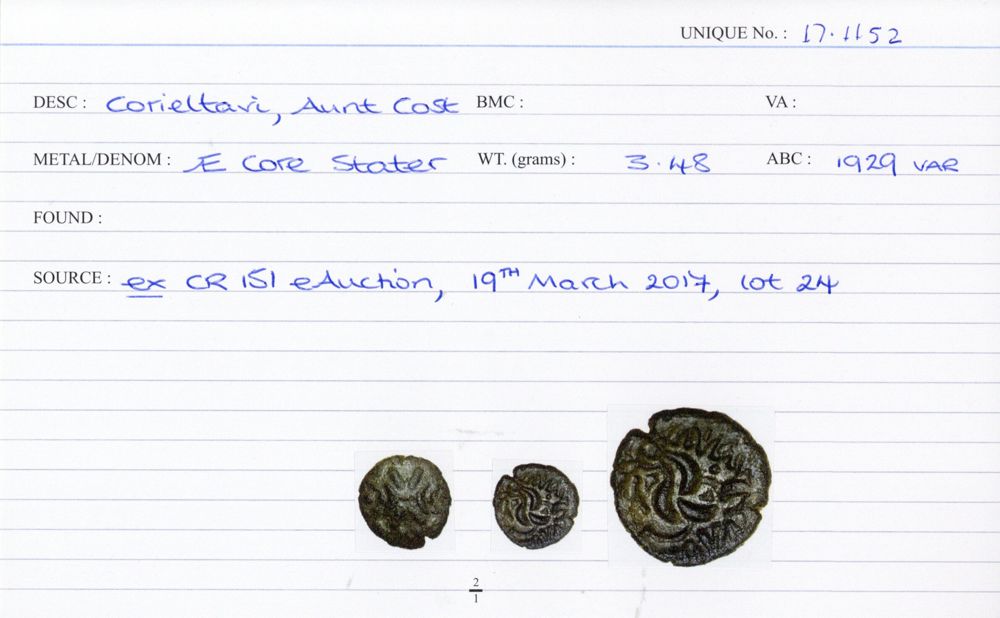 UNIQUE No. : 17.1152
DESC : Corieltavi, Aunt Cost BMC : VA :
METAL/DENOM : Æ Core Stater WT. (grams) : 3.48 ABC : 1929 VAR
FOUND :
SOURCE : ex CR 151 eAuction, 19TH March 2017, lot 24
2
1